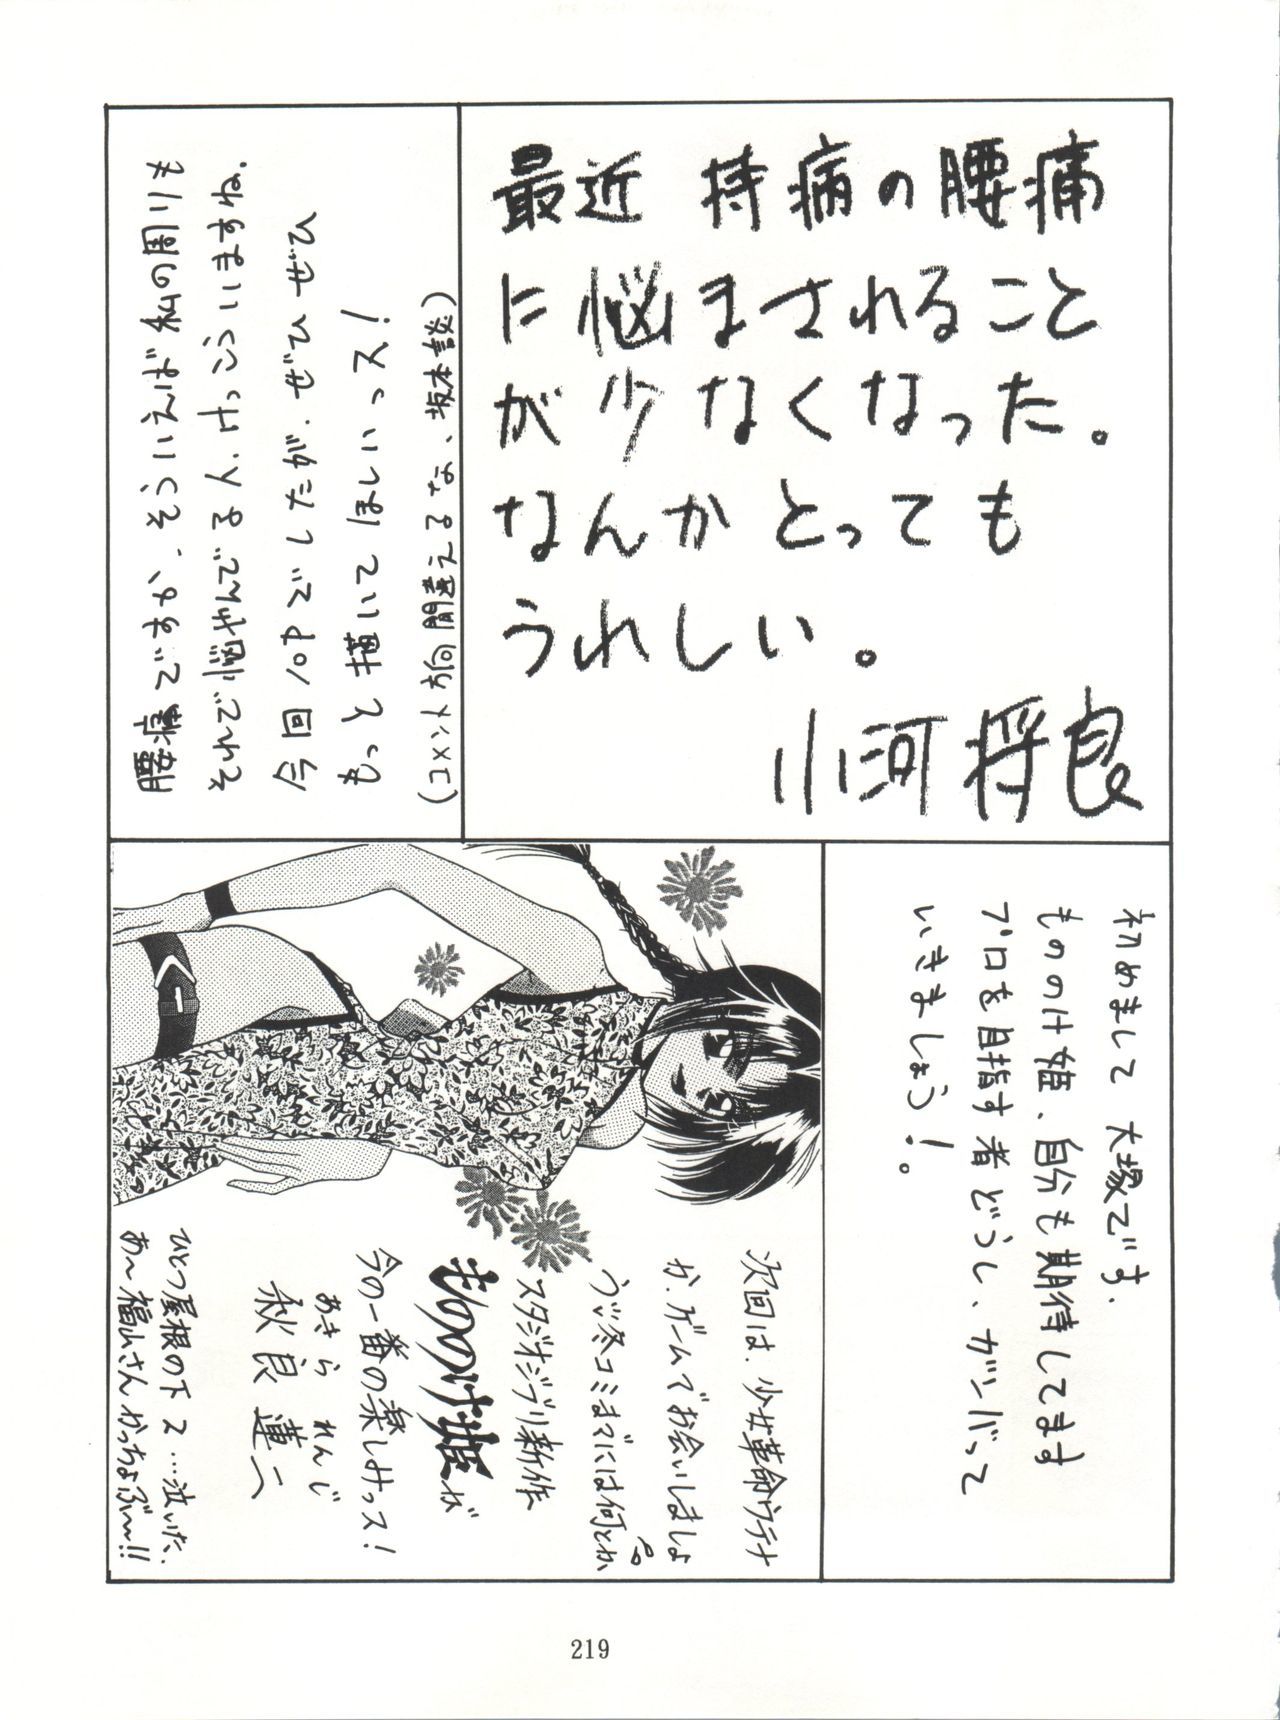 最近 持病の腰痛
に悩まされること
が少なくなった。
なんかとっても
うれしい。
小河将良
腰痛ですか、そういえば私の周りも
それで悩やんでる人、けっこういますね。
今回1OPでしたが、ぜひぜひ
もっと描いてほしいっス!
(コメント方向間違えるな、坂本談)
初めまして 大塚です.
もののけ姫、自分も期待してます
プロを目指す者どうし、ガンバって
いきましょう!。
次回は、少女革命ウテナ
か、ゲームでお会いしましょ
うvv冬コミまでには何とか
スタジオジブリ新作
もののけ姫が
今の一番の楽しみっス!
あきら れんじ
秋良 蓮二
ひとつ屋根の下2…泣いた、
あ〜福山さんかっちょぶ〜!!
219